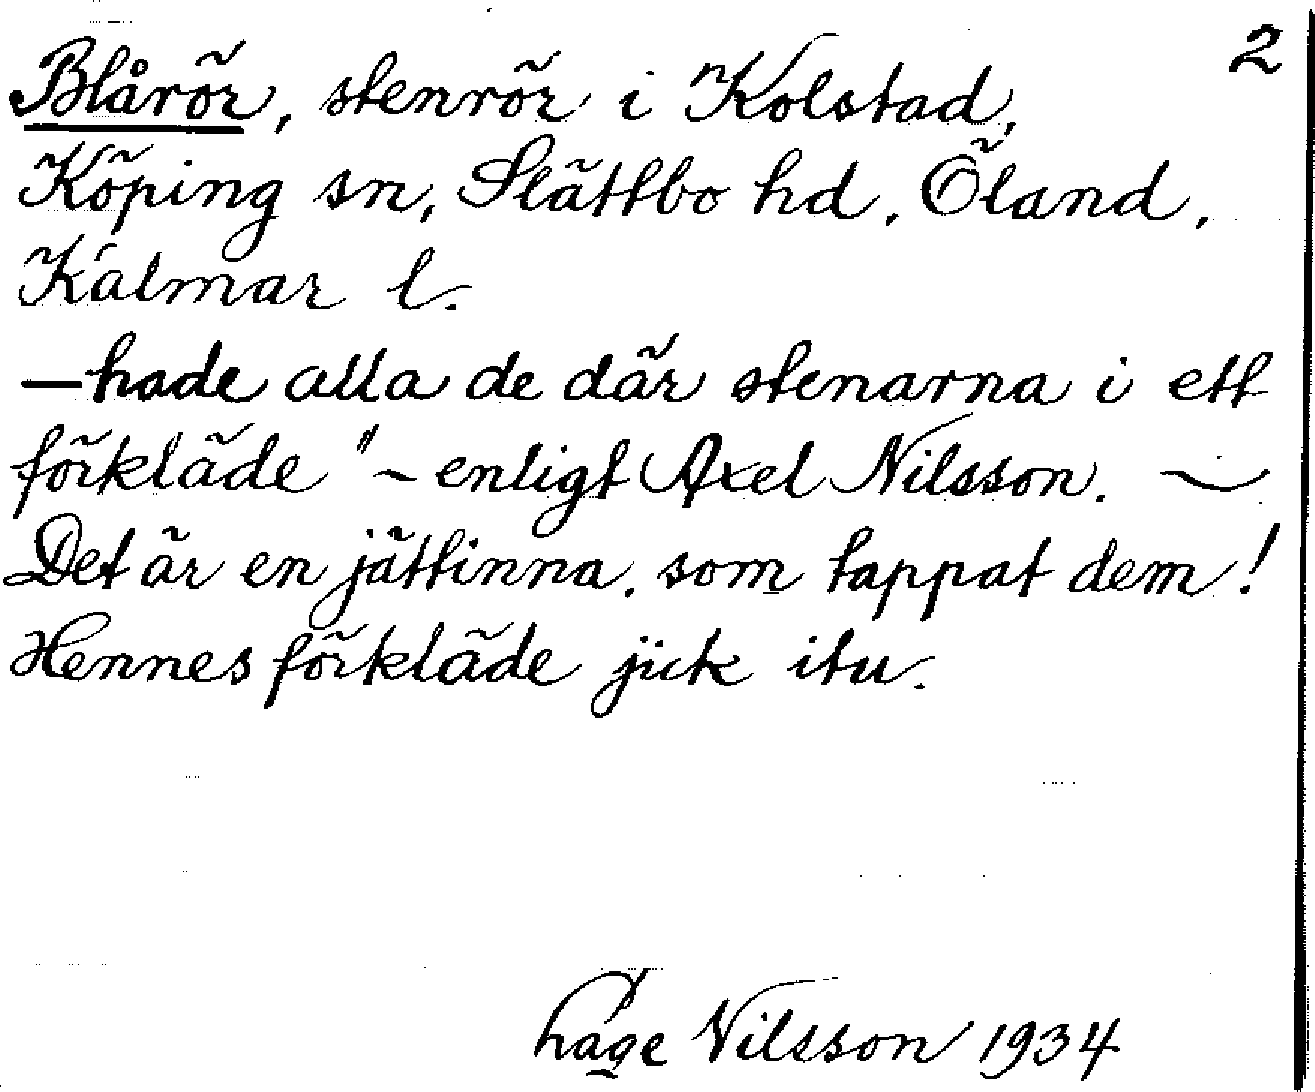 2
Blårör, stenrör i Kolstad,
Köping sn, Slättbo hd, Öland,
Kalmar l.
— hade alla de där stenarna i ett
förkläde" ~ enligt Axel Nilsson. ~
Det är en jättinna, som tappat dem!
Hennes förkläde jick itu.
Håge Nilsson 1934